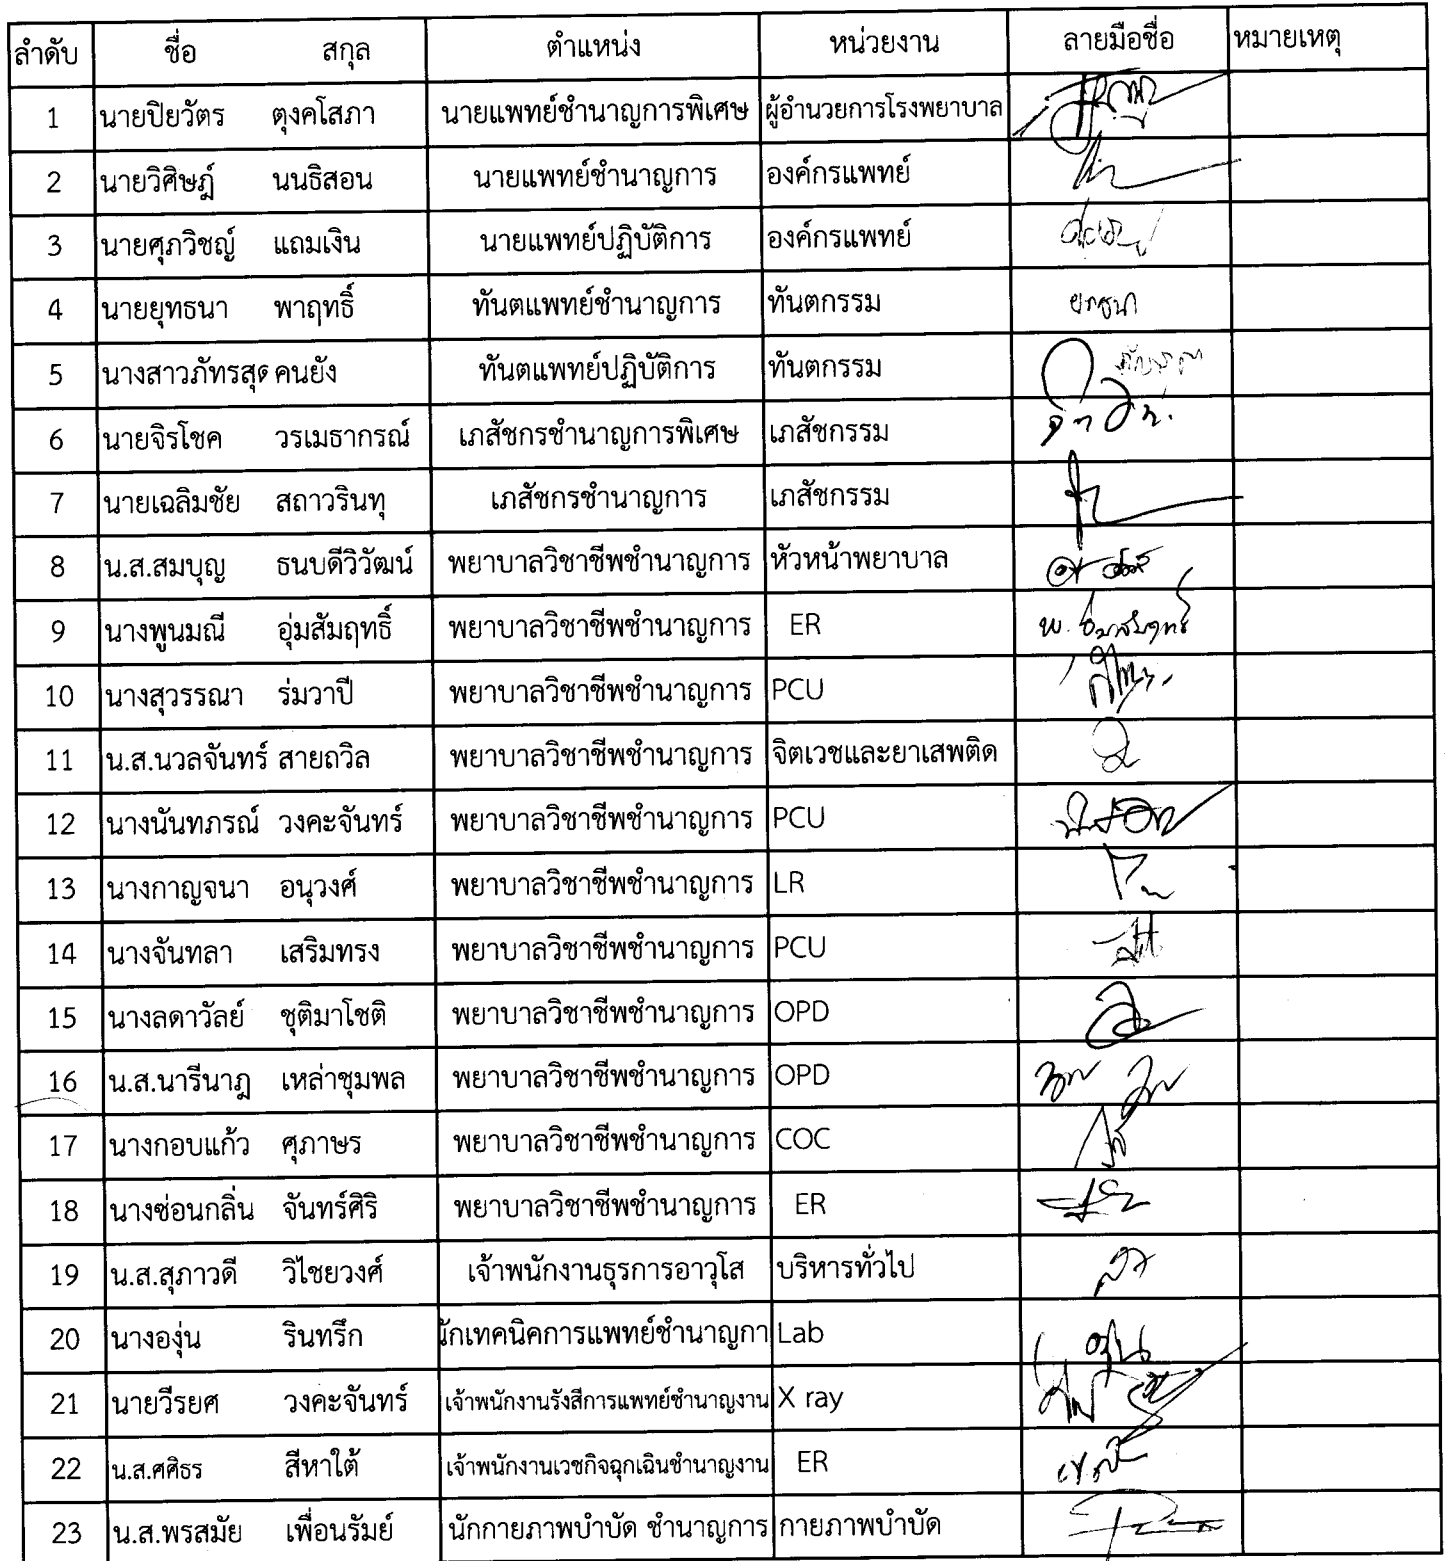 ลำดับ ชื่อ สกุล ตำแหน่ง หน่วยงาน ลายมือชื่อ หมายเหตุ
1 นายปิยวัตร ตุงคโสภา นายแพทย์ชำนาญการพิเศษ ผู้อำนวยการโรงพยาบาล
2 นายวิศิษฎ์ นนธิสอน นายแพทย์ชำนาญการ องค์กรแพทย์
3 นายศุภวิชญ์ แถมเงิน นายแพทย์ปฏิบัติการ องค์กรแพทย์
4 นายยุทธนา พาฤทธิ์ ทันตแพทย์ชำนาญการ ทันตกรรม ยุทธนา
5 นางสาวภัทรสุด คนยัง ทันตแพทย์ปฏิบัติการ ทันตกรรม
6 นายจิรโชค วรเมธากรณ์ เภสัชกรชำนาญการพิเศษ เภสัชกรรม
7 นายเฉลิมชัย สถาวรินทุ เภสัชกรชำนาญการ เภสัชกรรม
8 น.ส.สมบุญ ธนบดีวิวัฒน์ พยาบาลวิชาชีพชำนาญการ หัวหน้าพยาบาล
9 นางพูนมณี อุ่มสัมฤทธิ์ พยาบาลวิชาชีพชำนาญการ ER พ. อุ่มสัมฤทธิ์
10 นางสุวรรณา ร่มวาปี พยาบาลวิชาชีพชำนาญการ PCU
11 น.ส.นวลจันทร์ สายถวิล พยาบาลวิชาชีพชำนาญการ จิตเวชและยาเสพติด
12 นางนันทภรณ์ วงคะจันทร์ พยาบาลวิชาชีพชำนาญการ PCU
13 นางกาญจนา อนุวงศ์ พยาบาลวิชาชีพชำนาญการ LR
14 นางจันทลา เสริมทรง พยาบาลวิชาชีพชำนาญการ PCU
15 นางลดาวัลย์ ชุติมาโชติ พยาบาลวิชาชีพชำนาญการ OPD
16 น.ส.นารีนาฎ เหล่าชุมพล พยาบาลวิชาชีพชำนาญการ OPD
17 นางกอบแก้ว ศุภาษร พยาบาลวิชาชีพชำนาญการ COC
18 นางซ่อนกลิ่น จันทร์ศิริ พยาบาลวิชาชีพชำนาญการ ER
19 น.ส.สุภาวดี วิไชยวงศ์ เจ้าพนักงานธุรการอาวุโส บริหารทั่วไป
20 นางองุ่น รินทรึก นักเทคนิคการแพทย์ชำนาญกา Lab
21 นายวีรยศ วงคะจันทร์ เจ้าพนักงานรังสีการแพทย์ชำนาญงาน X ray
22 น.ส.ศศิธร สีหาใต้ เจ้าพนักงานเวชกิจฉุกเฉินชำนาญงาน ER
23 น.ส.พรสมัย เพื่อนรัมย์ นักกายภาพบำบัด ชำนาญการ กายภาพบำบัด